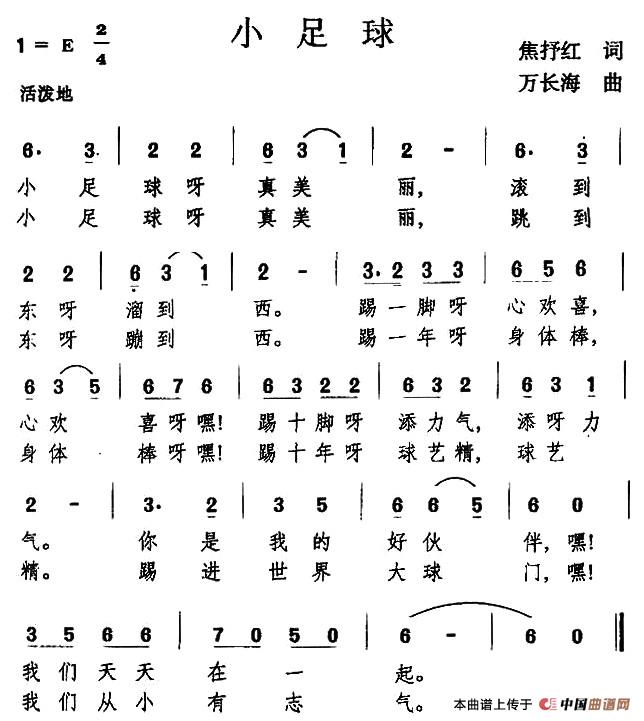 小 足 球
1 = E 2/4
焦抒红 词
万长海 曲
活泼地
6· 3 | 2 2 | 6 3 1 | 2 - | 6· 3 |
小 足 球 呀 真 美 丽, 滚 到
小 足 球 呀 真 美 丽, 跳 到
2 2 | 6 3 1 | 2 - | 3·2 3 3 | 6 5 6 |
东 呀 溜 到 西。 踢 一 脚 呀 心 欢 喜,
东 呀 蹦 到 西。 踢 一 年 呀 身 体 棒,
6 3 5 | 6 7 6 | 6 3 2 2 | 6 3 2 | 6 3 1 |
心 欢 喜 呀 嘿! 踢 十 脚 呀 添 力 气, 添 呀 力
身 体 棒 呀 嘿! 踢 十 年 呀 球 艺 精, 球 艺
2 - | 3· 2 | 3 5 | 6 6 5 | 6 0 |
气。 你 是 我 的 好 伙 伴, 嘿!
精。 踢 进 世 界 大 球 门, 嘿!
3 5 6 6 | 7 0 5 0 | 6 - | 6 0 ‖
我 们 天 天 在 一 起。
我 们 从 小 有 志 气。
本曲谱上传于 中国曲谱网